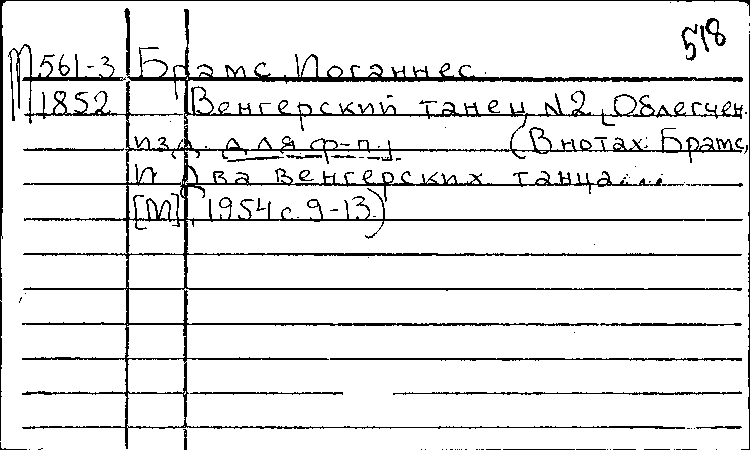 518
М 561-3 Брамс, Иоганнес.
1852 Венгерский танец N2 [Облегчен.
изд. для ф-п.] (В нотах: Брамс,
И. Два венгерских танца...
[М], 1954 с. 9-13.)